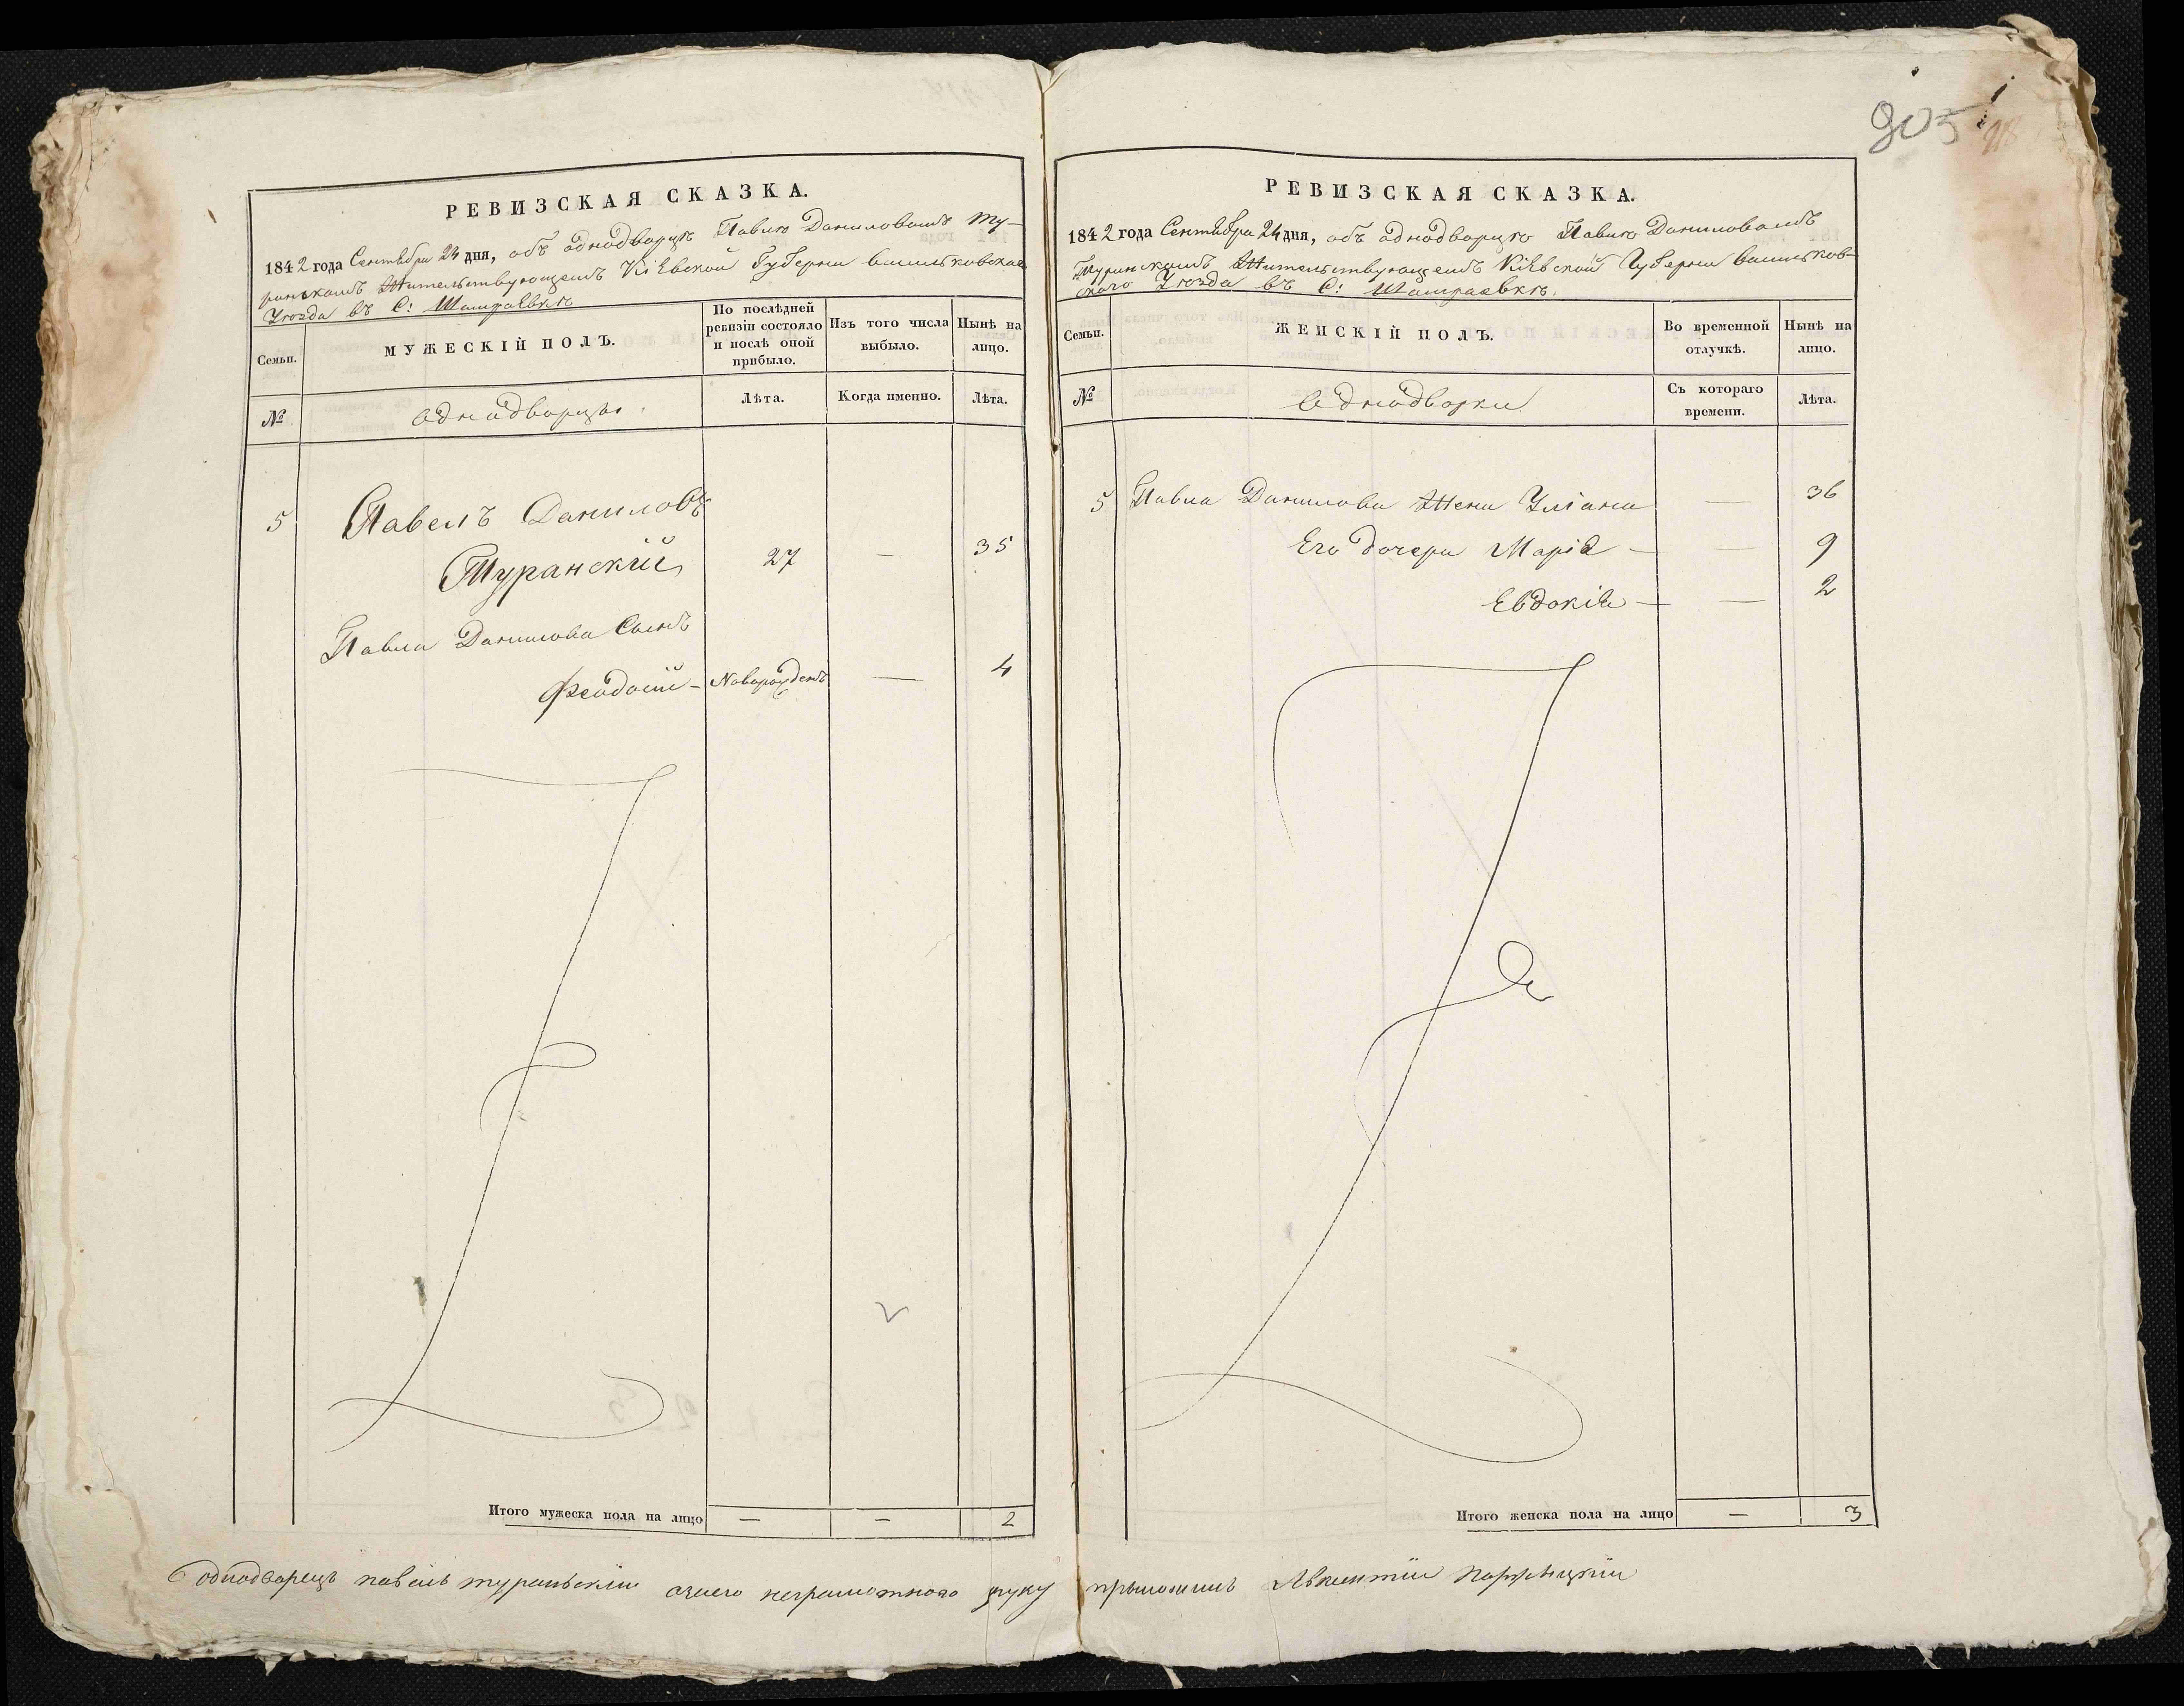 905
РЕВИЗСКАЯ СКАЗКА.
1842 года Сентября 24 дня, объ однодворцѣ Павлѣ Даниловомъ Ту-
ранскомъ Жительствующемъ Кіевской Губерніи Васильковскаго
Уѣзда въ С: Шамраевкѣ
Семьи.
МУЖЕСКІЙ ПОЛЪ.
По послѣдней ревизіи состояло и послѣ оной прибыло.
Изъ того числа выбыло.
Нынѣ на лицо.
№
однодворцы.
Лѣта.
Когда именно.
Лѣта.
5 Павелъ Даниловъ
Туранскій 27 — 35
Павла Данилова Сынъ
Феодосій – Новорожденъ — 4
Итого мужеска пола на лицо — — 2
РЕВИЗСКАЯ СКАЗКА.
1842 года Сентября 24 дня, объ однодворцѣ Павлѣ Даниловомъ
Туринскомъ Жительствующемъ Кіевской Губерніи Васильков-
скаго Уѣзда въ С: Шамраевкѣ.
Семьи.
ЖЕНСКІЙ ПОЛЪ.
Во временной отлучкѣ.
Нынѣ на лицо.
№
однодворки
Съ котораго времени.
Лѣта.
5 Павла Данилова Жена Уліана — 36
Его дочери Марія — — 9
Евдокія — — 2
Итого женска пола на лицо — 3
однодварецъ павелъ мураньскии озаего неграмотного руку прыложилъ